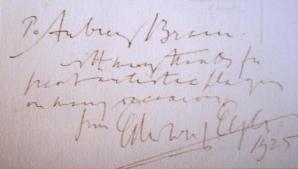 To Aubrey Brain
with many thanks for
great artistic playing
on many occasions
from Edward Elgar
1925